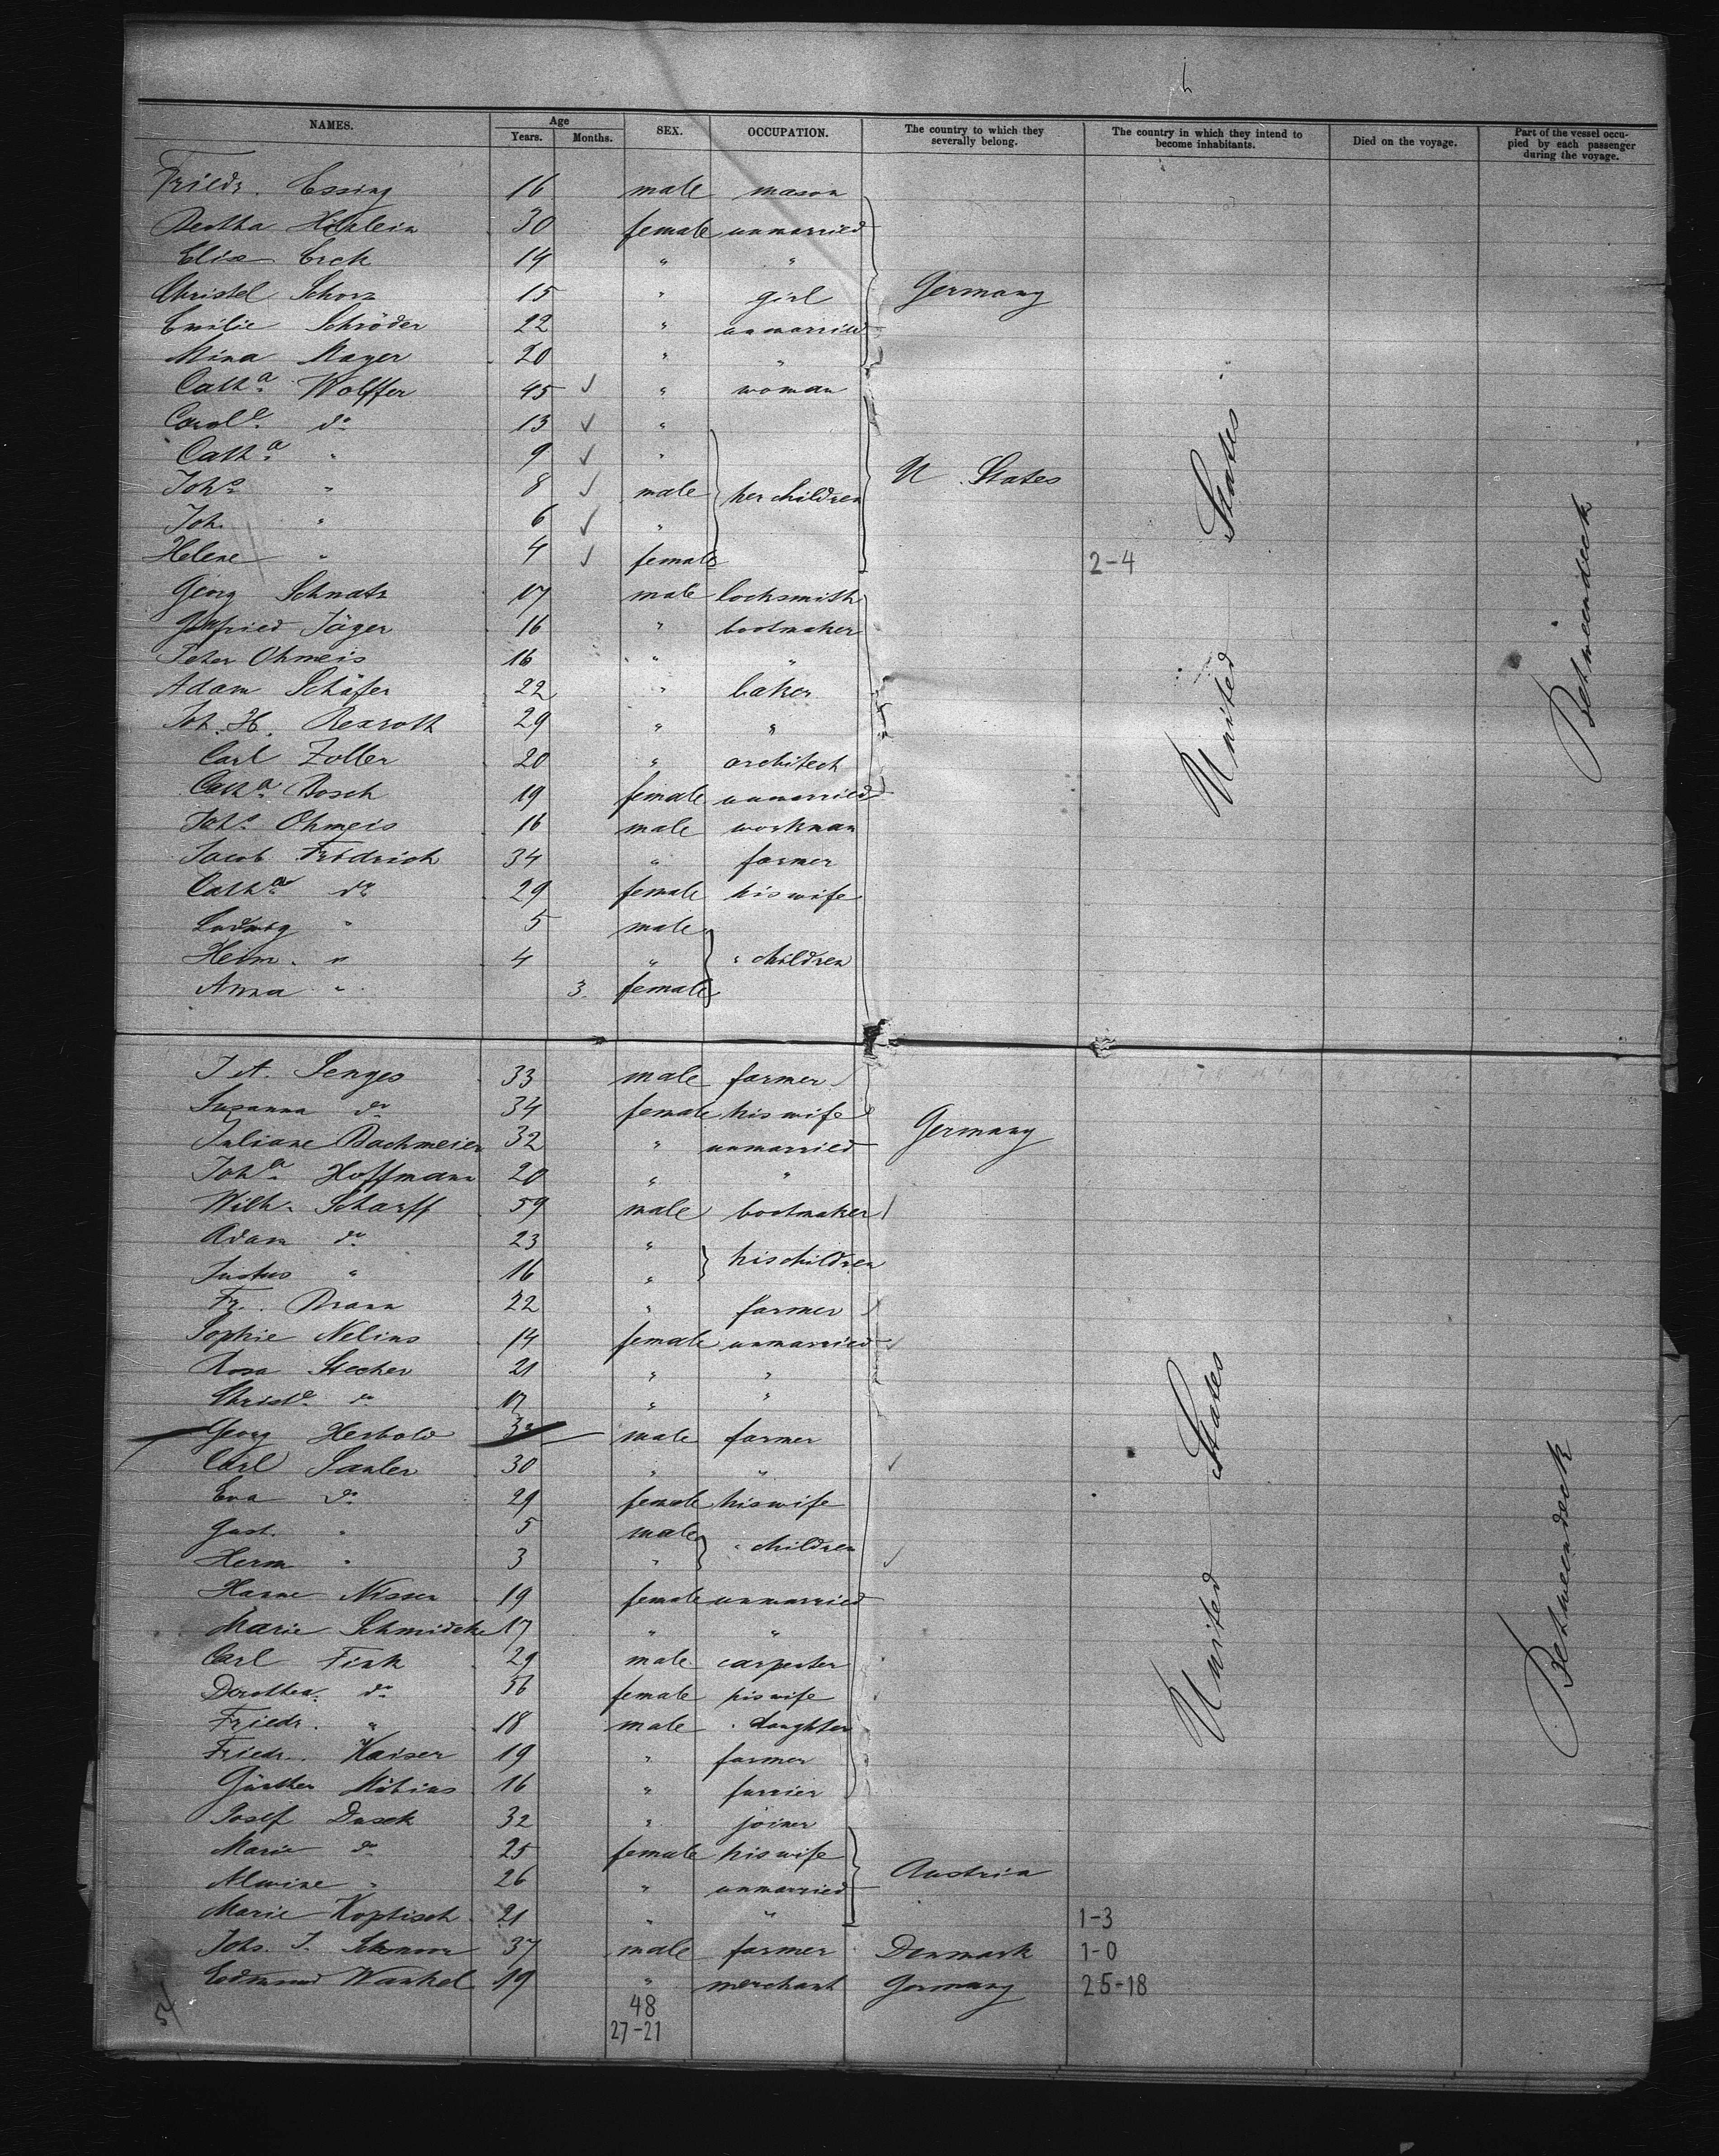 5
NAMES. Age Years. Months. SEX. OCCUPATION. The country to which they severally belong. The country in which they intend to become inhabitants. Died on the voyage. Part of the vessel occupied by each passenger during the voyage.
Friedr. Essing 16 male mason
Bertha 30 female unmarried
Elise Erck 14 " "
Christel Schorr 15 " girl Germany
Emilie Schröder 22 " unmarried
Mina Mayer 20 " "
Cath.a Wolffer 45 ✓ " woman
Carol.e do 13 ✓ "
Cath.a " 9 ✓ "
Joh.s " 8 ✓ male her children U States
Joh. " 6 ✓ "
Helene " 4 ✓ female 2-4
Georg Schnatz 17 male locksmith
Gottfried Jäger 16 " bootmaker
Peter Ohmeis 16 " "
Adam Schäfer 22 " baker
Joh. H. Rexroth 29 " "
Carl Zoller 20 " architect
Cath.a Bosch 19 female unmarried
Joh.s Ohmeis 16 male workman
Jacob Fridrich 34 " farmer
Cath.a do 29 female his wife
Ludwig " 5 male
Heinr. " 4 " " children
Anna " 3 female
United States
Betweendeck
Jenges 33 male farmer
Susanna do 34 female his wife Germany
Juliane Bachmeier 32 " unmarried
Joh.a Hoffmann 20 " "
Wilh. Scharff 59 male bootmaker
Adam do 23 " his children
Justus " 16 "
Fr. Braun 22 " farmer
Sophie Nelius 14 female unmarried ✓
Rosa Stecher 21 " "
Christ.e do 17 " "
Georg Herbold male farmer
Carl Sauler 30 " " ✓
Eva do 29 female his wife
Gust. " 5 male " children
Herm " 3 " ✓
Hanne Nissen 19 female unmarried
Marie Schmidtke 17 " "
Carl Fink 29 male carpenter
Dorothea do 36 female his wife
Friedr. " 18 male " daughter
Friedr. Kaiser 19 " farmer
Günther Möbius 16 " furrier
Josef Dusek 32 " joiner
Marie do 25 female his wife
Alwine " 26 " unmarried Austria
Marie Koptisch 21 " " 1-3
Johs. J. 37 male farmer Denmark 1-0
Edmund Wankel 19 " merchant Germany 25-18
United States
Betweendeck
48
27-21
5